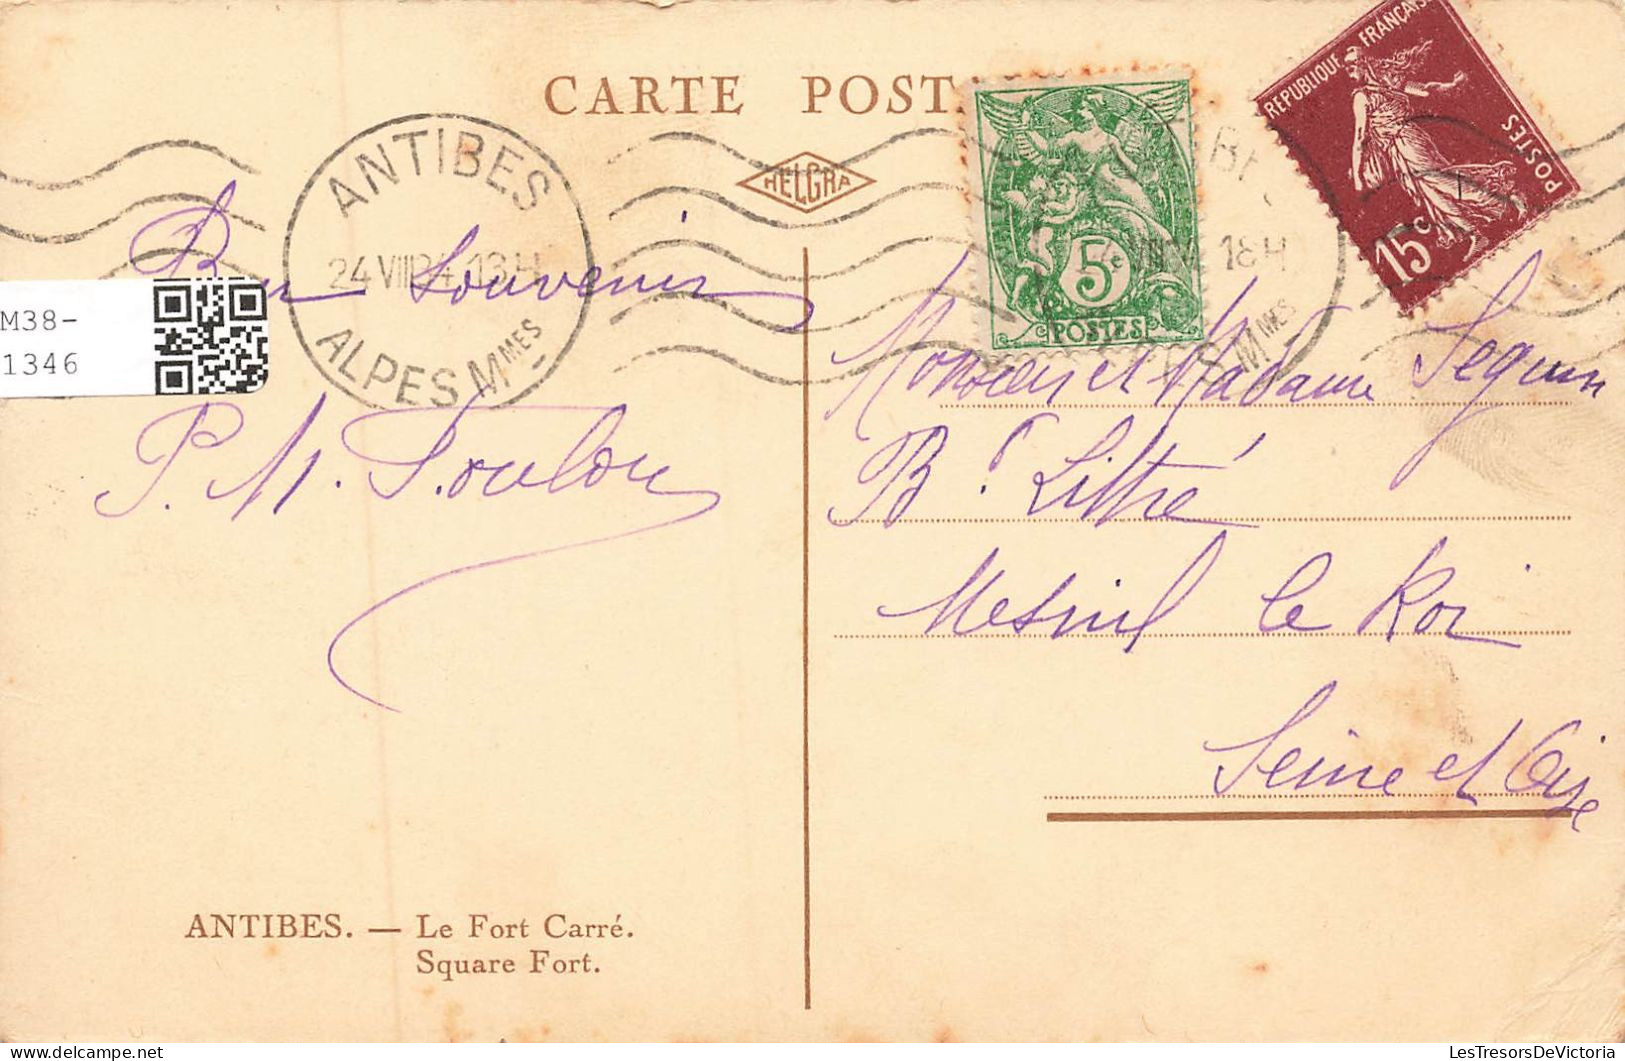 CARTE POST
HELGRA
ANTIBES
24 VIII 34 18H
ALPES Mmes
REPUBLIQUE FRANCAIS
POSTES
15c
5c
POSTES
18H
ES Mmes
Bon Souvenir
P. M. Toulou
M38-
1346
Monsieur et Madame Seguin
Bd Littré
Mesnil le Roi
Seine et Oise
ANTIBES. — Le Fort Carré.
Square Fort.
LesTresorsDeVictoria